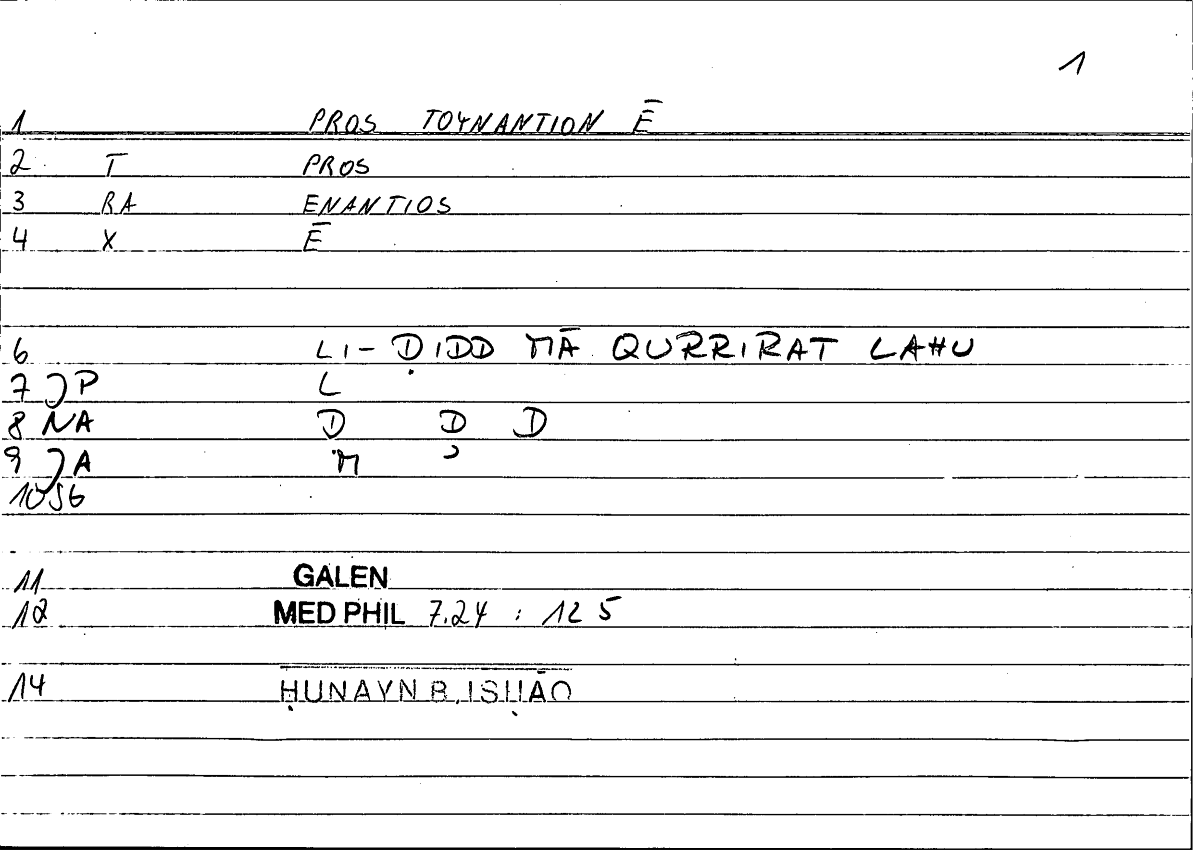 1
1 PROS TOYNANTION Ē
2 T PROS
3 RA ENANTIOS
4 X Ē
6 LI-ḌIDD MĀ QURRIRAT LAHU
7 JP L
8 NA D D D
9 JA M
10 SG
11 GALEN
12 MED PHIL 7.24 : 12 5
14 ḤUNAYN B. ISḤĀQ